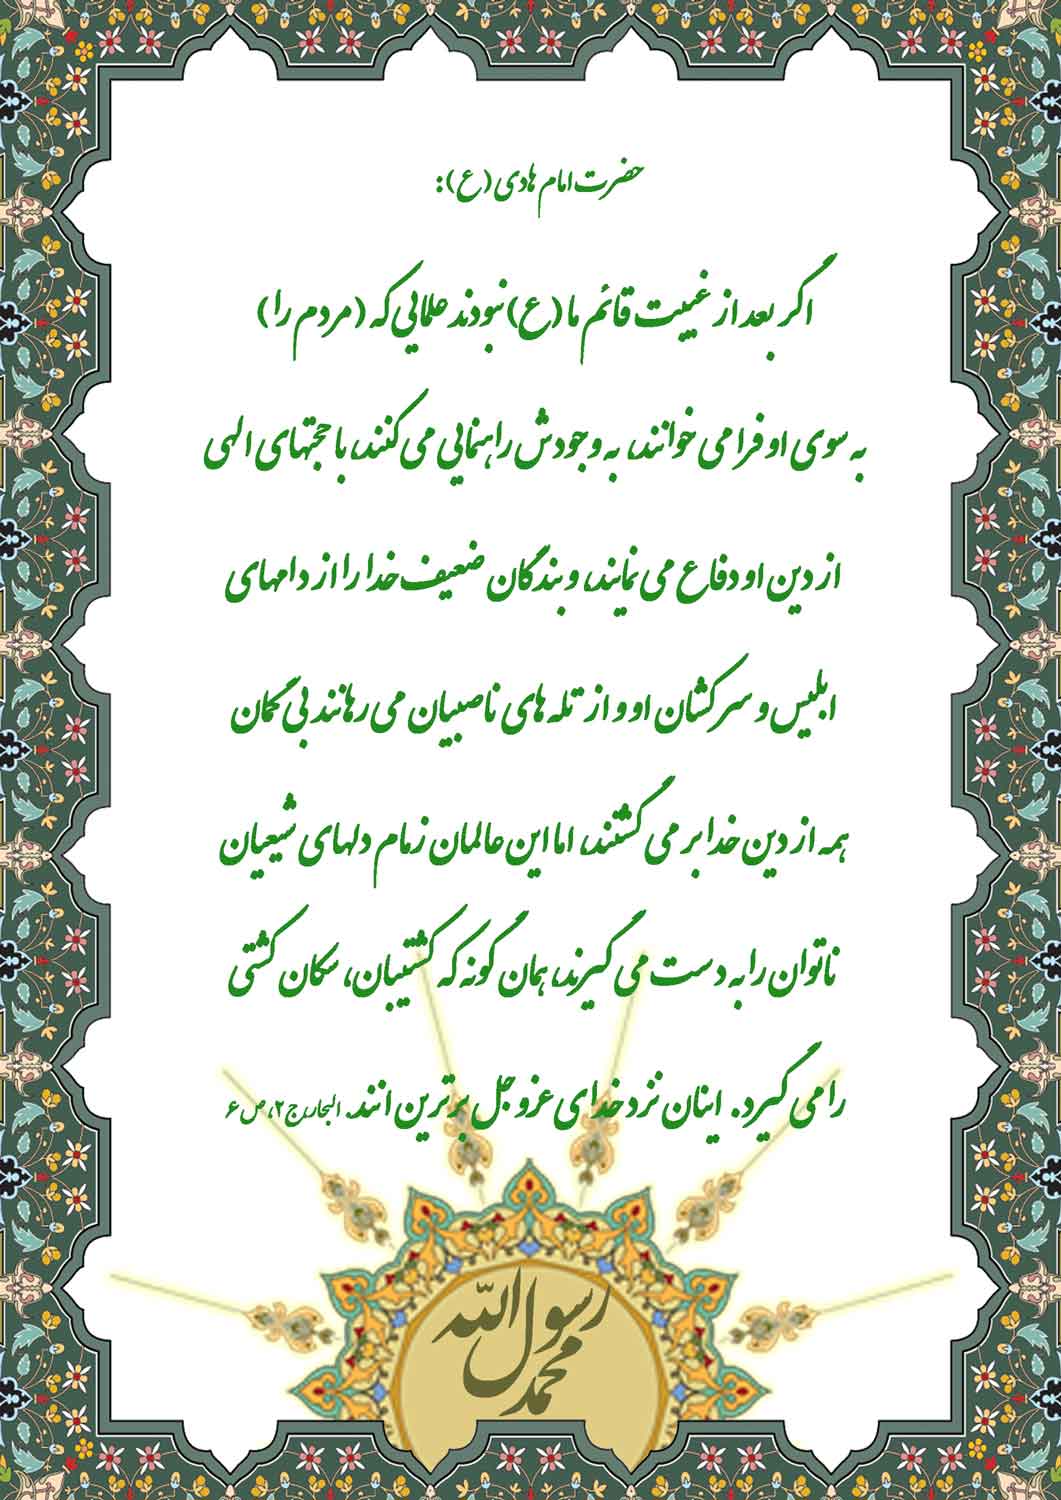 حضرت امام هادی (ع):
اگر بعد از غیبت قائم ما (ع) نبودند علمایی که (مردم را)
به سوی او فرا می خوانند، به وجودش راهنمایی می کنند، با حجتهای الهی
از دین او دفاع می نمایند، و بندگان ضعیف خدا را از دامهای
ابلیس و سرکشان او و از تله های ناصبیان می رهانند بی گمان
همه از دین خدا بر می گشتند، اما این عالمان زمام دلهای شیعیان
ناتوان را به دست می گیرند، همان گونه که کشتیبان، سکان کشتی
را می گیرد. اینان نزد خدای عز و جل برترین انند. البحار، ج ۲، ص ۶
محمد رسول الله